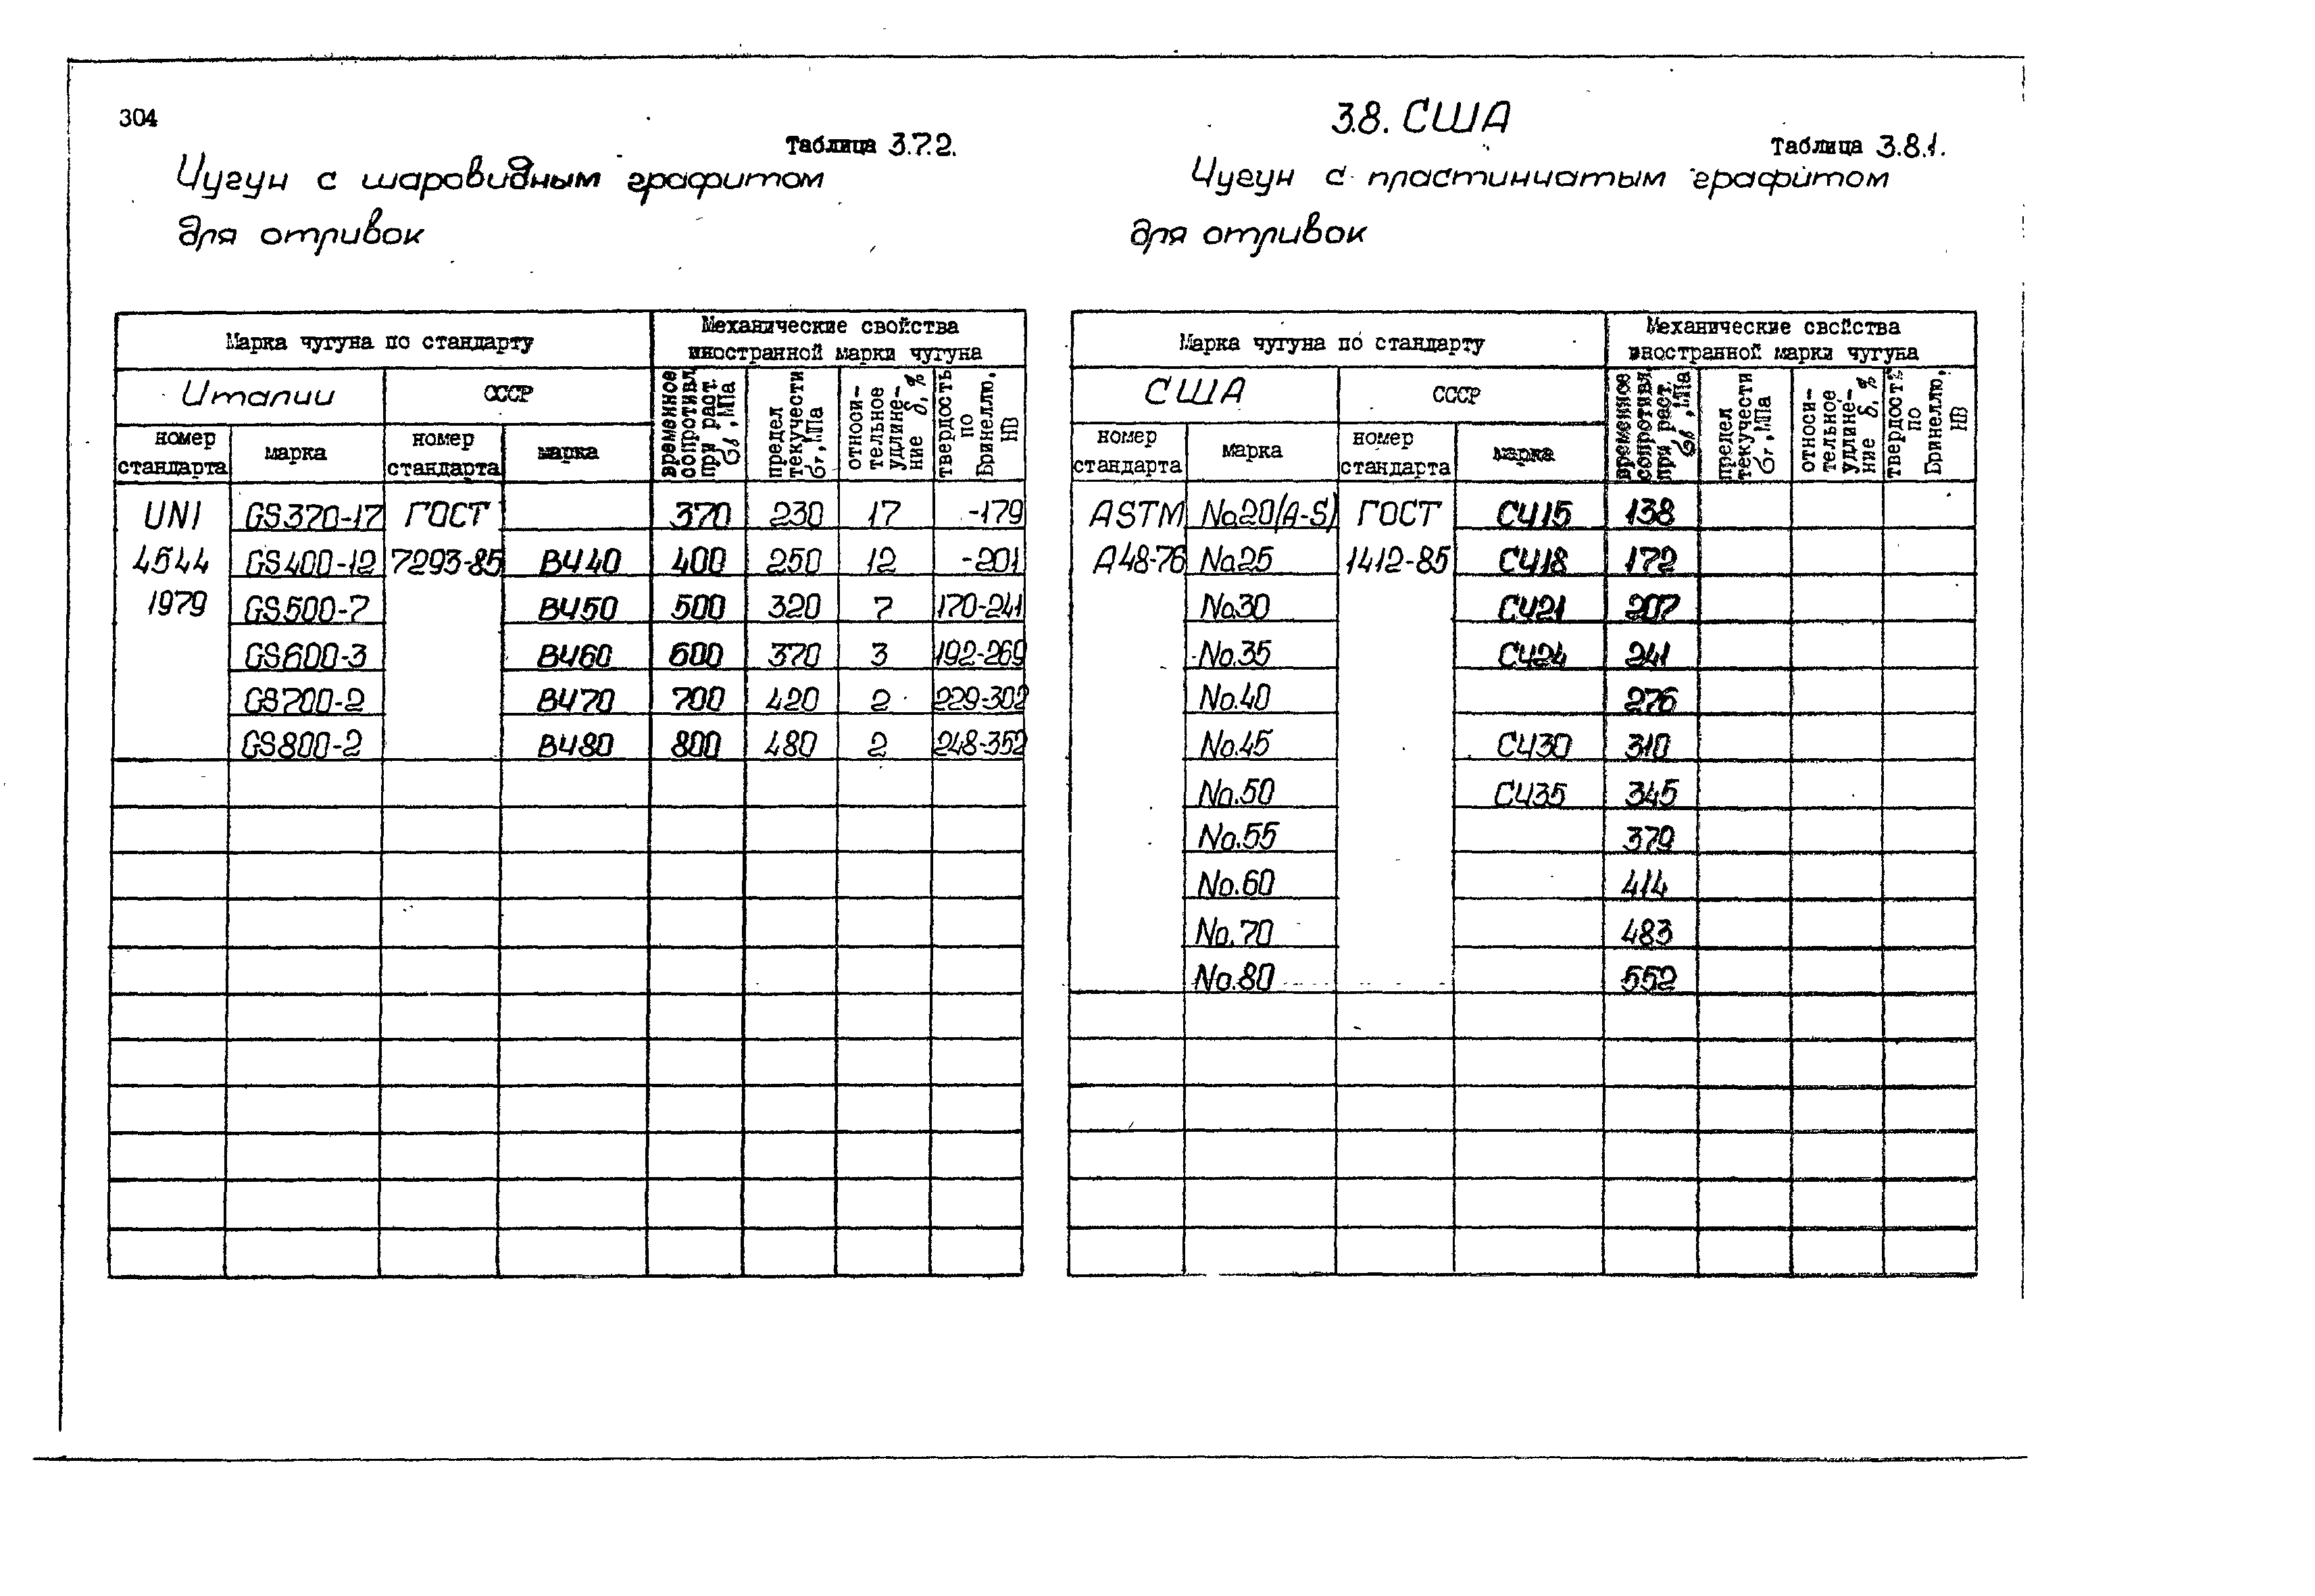 304
Таблица 3.7.2.
Чугун с шаровидным графитом
для отливок
Марка чугуна по стандарту
Механические свойства
иностранной марки чугуна
Италии
СССР
временное
сопротивл.
при раст.
σв, МПа
предел
текучести
σт, МПа
относи-
тельное
удлине-
ние δ, %
твердость
по
Бринеллю,
НВ
номер
стандарта
марка
номер
стандарта
марка
UNI GS370-17 ГОСТ 370 230 17 -179
4544 GS400-12 7293-85 ВЧ40 400 250 12 -201
1979 GS500-7 ВЧ50 500 320 7 170-241
GS600-3 ВЧ60 600 370 3 192-269
GS700-2 ВЧ70 700 420 2 229-302
GS800-2 ВЧ80 800 480 2 248-352
3.8. США
Таблица 3.8.1.
Чугун с пластинчатым графитом
для отливок
Марка чугуна по стандарту
Механические свойства
иностранной марки чугуна
США
СССР
временное
сопротивл.
при раст.
σв, МПа
предел
текучести
σт, МПа
относи-
тельное
удлине-
ние δ, %
твердость
по
Бринеллю,
НВ
номер
стандарта
марка
номер
стандарта
марка
ASTM No20(A-S) ГОСТ СЧ15 138
A48-76 No25 1412-85 СЧ18 172
No30 СЧ21 207
No.35 СЧ24 241
No.40 276
No.45 СЧ30 310
No.50 СЧ35 345
No.55 379
No.60 414
No.70 483
No.80 552